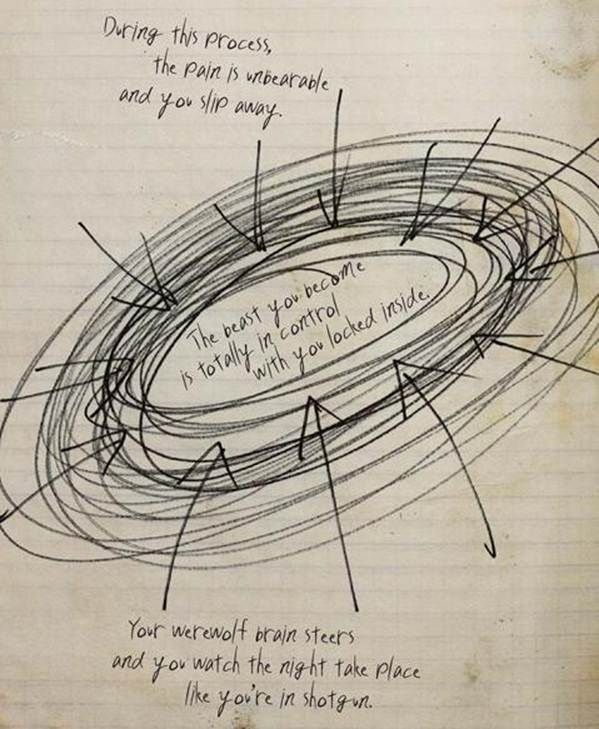 During this process,
the pain is unbearable
and you slip away.
The beast you become
is totally in control
with you locked inside.
Your werewolf brain steers
and you watch the night take place
like you're in shotgun.